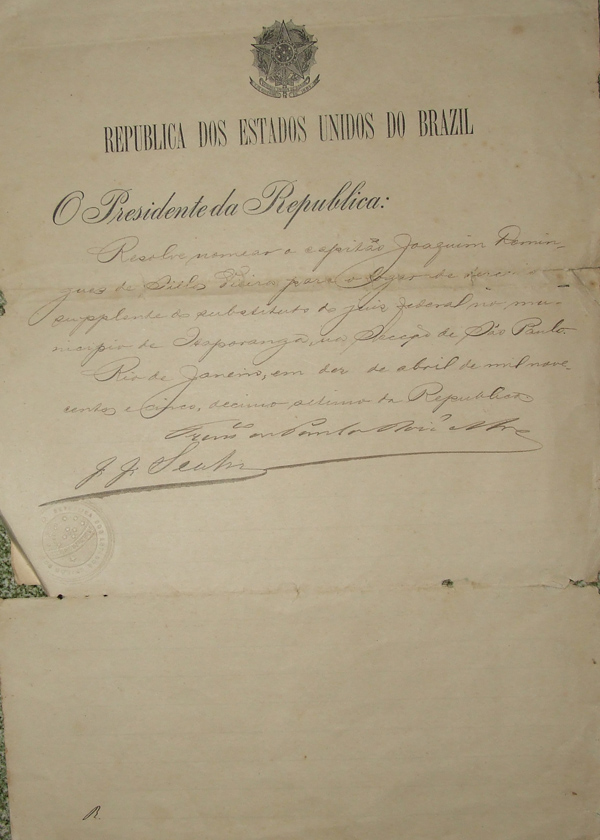 REPUBLICA DOS ESTADOS UNIDOS DO BRAZIL
O Presidente da Republica:
Resolve nomear o capitão Joaquim Domin-
gues de para o logar de
supplente do substituto do juiz federal no mu-
nicipio de Itaporanga, na Secção de São Paulo.
Rio de Janeiro, em dez de abril de mil nove-
centos e cinco, decimo setimo da Republica
J. J. Seabra